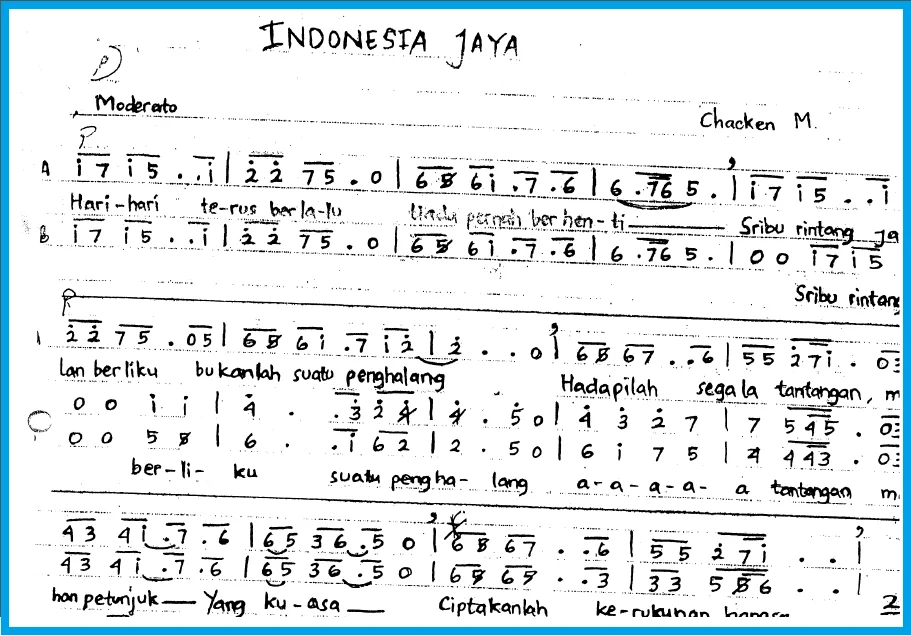 INDONESIA JAYA
P
Moderato
Chacken M.
P
A i̇7 i̇5 . . i̇ | 2̇ 2̇ 75 . 0 | 65 6i̇ . 7 . 6 | 6 . 76 5 . | i̇7 i̇5 . . i̇
Hari-hari te-rus ber la-lu tiada pernah ber hen-ti Sribu rintang ja
B i̇7 i̇5 . . i̇ | 2̇ 2̇ 75 . 0 | 65 6i̇ . 7 . 6 | 6 . 76 5 . | 0 0 i̇7 i̇5
Sribu rintang
2̇ 2̇ 75 . 05 | 65 6i̇ . 7 i̇2̇ | 2̇ . . 0 | 65 67 . . 6 | 55 2̇7i̇ . 03
lan ber liku bukanlah suatu penghalang Hadapilah sega la tantangan, m
0 0 i̇ i̇ | 4̇ . . 3̇ 2̇ 4̇ | 4̇ . 5 0 | 4̇ 3̇ 2̇ 7 | 7 545 . 03
0 0 5 5 | 6 . . i̇ 62 | 2 . 5 0 | 6 i̇ 7 5 | 4 443 . 03
ber-li- ku suatu pengha- lang a-a-a-a- a tantangan m
43 4i̇ . 7 . 6 | 65 36 . 5 0 | 65 67 . . 6 | 55 2̇7i̇ . . |
43 4i̇ . 7 . 6 | 65 36 . 5 0 | 65 65 . . 3 | 33 556 . . |
hon petunjuk Yang ku-asa Ciptakanlah ke-rukunan bangsa
2